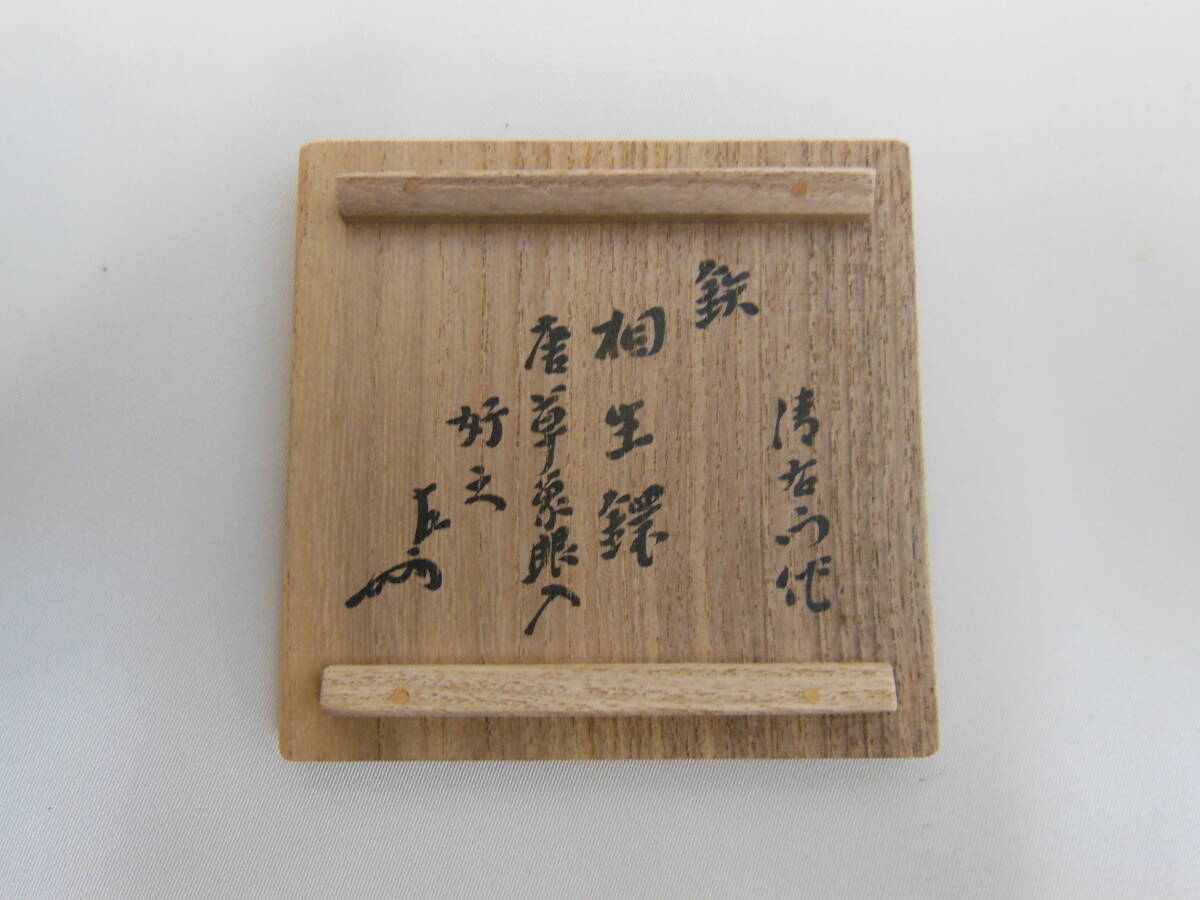 清右衛門作
鉄
相生鐶
唐草象眼入
好之